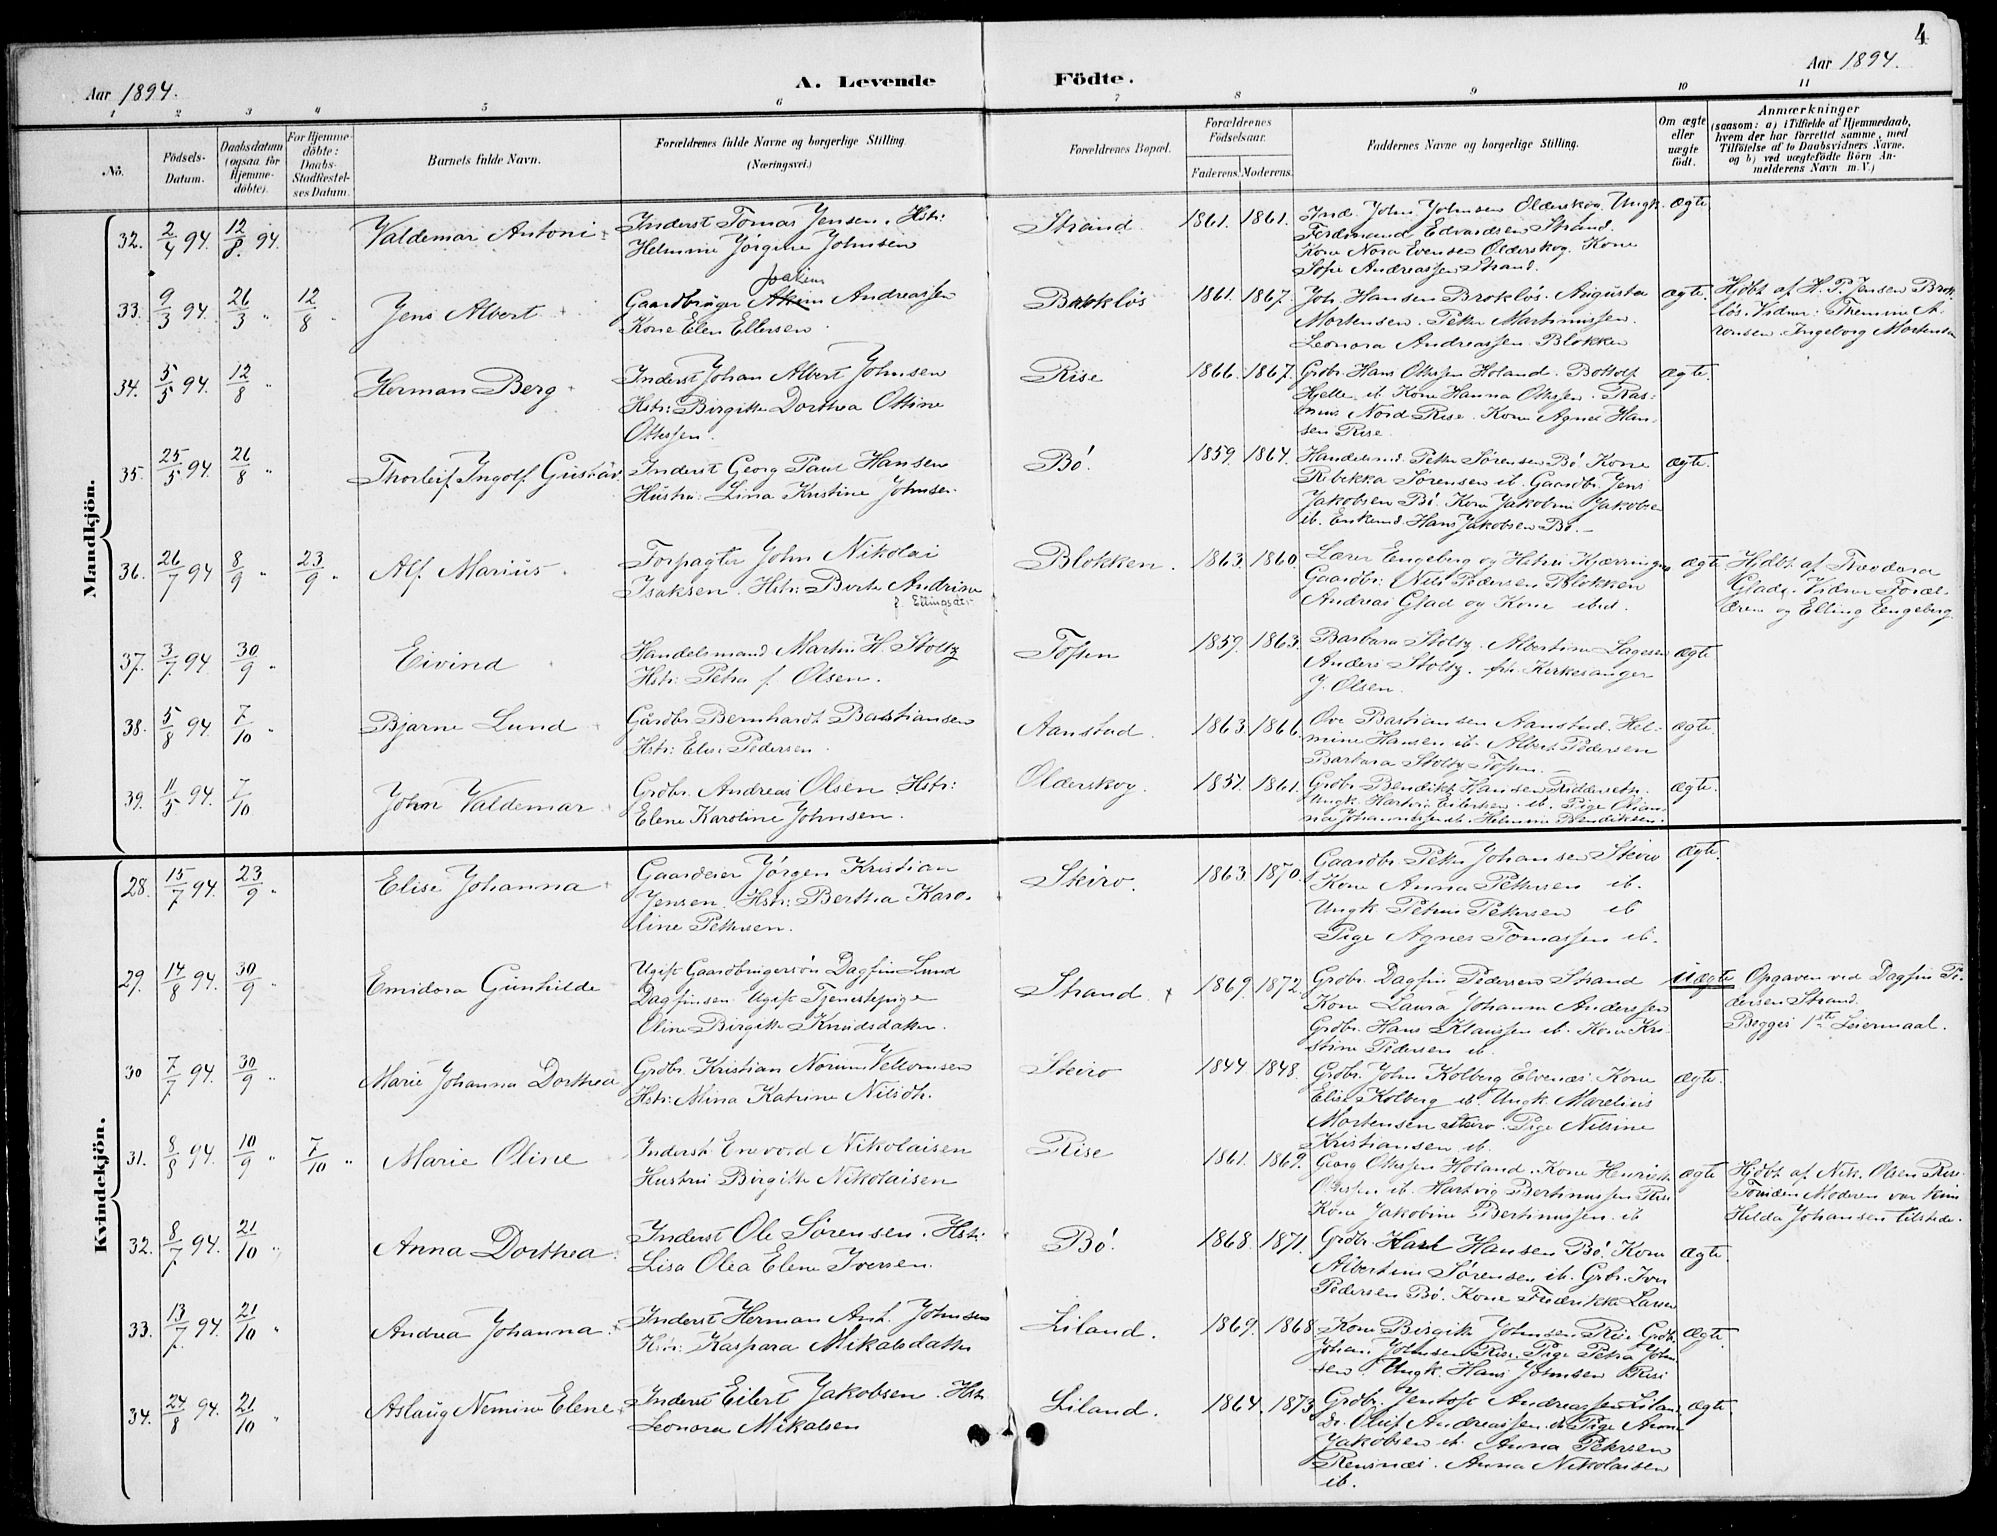 4
Aar 1894.
A. Levende Födte.
Aar 1894.
1 2 3 4 5 6 7 8 9 10 11
No.
Födsels-Datum.
Daabsdatum (ogsaa for Hjemme-döbte).
For Hjemme-döbte: Daabs-Stadfestel-ses Datum.
Barnets fulde Navn.
Forældrenes fulde Navne og borgerlige Stilling. (Næringsvei.)
Forældrenes Bopæl.
Forældrenes Födselsaar.
Faderens. Moderens.
Faddernes Navne og borgerlige Stilling.
Om ægte eller uægte födt.
Anmærkninger
(saasom: a) i Tilfælde af Hjemmedaab,
hvem der har forrettet samme, med
Tilföielse af to Daabsvidners Navne.
og b) ved uægtefödte Börn An-
melderens Navn m.V.)
Mandkjön.
32. 2/4 94. 12/8. 94. Valdemar Antoni Inderst Tomas Jensen. Hstr: Strand. 1861. 1861. Ind. John Johnsen Olderskog. Ungk. ægte
Helmine Jørgine Johnsen Ferdinand Edvardsen Strand.
Kone Nora Evensen Olderskog. Kone
Sofie Andreassen Strand.
Joakim
33. 9/3 94. 26/3 " 12/8 Jens Albert Gaardbruger Akim Andreassen Brokløs 1861. 1867. Joh. Hansen Brokløs. Augusta ægte. Hjdbt af H. P. Jensen Brok
Kone Elen Ellersen. Mortensen. Peter Martinussen. løs. Vidner:
Leonora Andreassen Blokken rensen. Ingeborg Mortensen
34. 5/5 94. 12/8 " Herman Berg Inderst Johan Albert Johnsen Rise 1866. 1867. Grdbr. Hans Ottesen Holand. ægte.
Hstr: Birgitte Dorthea Ottine Hjelle ib. Kone Hanna Ottesen. Ras-
Ottesen. mus Nord Rise. Kone Agnes Han-
sen Rise.
35. 25/5 94. 26/8 " Thorleif Ingolf Gustav Inderst Georg Paul Hansen Bö. 1859. 1864. Handelsmd. Peter Sørensen Bö. Kone ægte.
Hustru: Lina Kristine Johnsen. Rebekka Sørensen ib. Gaardbr. Jens
Jakobsen Bö. Kone Jakobine Jakobsen
ib. Enkemd. Hans Jakobsen Bö.
36. 26/7 94 8/9 " 23/9 " Alf Marius. Forpagter John Nikolai Blokken. 1863. 1860. Lærer Engeberg og Hstru Kjærringnes ægte Hjdbt. af Teodora
Isaksen. Hstr: Berte Andrine Gaardbr: Nils Pedersen Blokken Glad. Vidner Foræl-
f. Ellingsdtr. Andreas Glad og Kone ibid. drene og Elling Engeberg.
37. 3/7. 94 30/9 " Eivind Handelsmand Martin H. Stoltz Tofsen 1859. 1863. Barbara Stoltz. Albertine Lagesen ægte
Hstr: Petra f. Olsen. Anders Stoltz. frk. Kirkesanger
J. Olsen.
38. 5/8 94 7/10 " Bjarne Lund Gårdbr. Bernhardt Bastiansen Aanstad. 1863. 1866. Ove Bastiansen Aanstad. Hel- ægte.
Hstr: Elen Pedersen. mine Hansen ib. Albert Pedersen
Barbara Stoltz Tofsen.
39. 11/5 94. 7/10 John Valdemar Grdbr. Andreas Olsen. Hstr: Olderskog. 1857. 1861. Grdbr. Bendikt Hansen ægte.
Elene Karoline Johnsen. Ungk. Hartvig Eilertsen. ib. Pige Olian-
na Johannessen ib. Helmine Bendiksen.
Kvindekjön.
28. 15/7 94. 23/9 " Elise Johanna Gaardeier Jørgen Kristian Skiro. 1863. 1870. Gaardbr. Peter Johansen Steiro ægte.
Jensen. Hstr: Berthea Karo- Kone Anna Pettersen ib.
line Pettersen. Ungk. Petrus Petersen ib
Pige Agnes Tomassen ib.
29. 14/8 94. 30/9 " Emidora Gunhilde Ugift Gaardbrugersön Dagfin Lund Strand. 1869. 1872. Grdbr. Dagfin Pedersen Strand Uægte Opgaven ved Dagfin Pe-
Dagfinsen. Ugift Tjenestepige Kone Laura Johanna Anderssen dersen Strand.
Oline Birgitte Knudsdatter. Grdbr. Hans Klaussen ib. Kone Kri- Begges 1ste Leiermaal.
stine Pedersen ib.
30 7/7. 94. 30/9 " Marie Johanna Dorthea Grdbr. Kristian Norum Steiro 1844 1848. Grdbr. John Kolberg Elvenæs. Kone ægte.
Hstr: Mina Katrine Nilsdtr. Elise Kolberg ib. Ungk. Marelius
Mortensen Steiro. Pige Nilsine
Kristiansen ib.
31. 8/8 94. 10/9 " 7/10 " Marie Oline Inderst Enevold Nikolaisen Rise 1861. 1869. Georg Ottesen Holand. Kone Henrikke ægte Hjdbt. af Nik. Olsen Rise.
Hustru Birgitte Nikolaisen Ottesen ib. Hartvig Bertinussen Rise Foruden Moderen var kun
Kone Jakobine Bertinussen. ib Hilda Johansen tilstede.
32. 8/7. 94. 21/10 " Anna Dorthea Inderst Ole Sørensen. Hstr: Bö. 1868. 1871. Grdbr. Karl Hansen Bö. Kone ægte.
Lisa Olea Elene Iversen. Albertine Sørensen ib. Grbr. Iver
Pedersen Bö. Kone Fredrikke Larsen
33. 13/7. 94. 21/10 " Andrea Johanna. Inderst Herman Ant. Johnsen Liland. 1869. 1868 Kone Birgitte Johnsen Rise Grdbr. ægte.
Hstr: Kaspara Mikalsdatter Johan Johnsen Rise. Pige Petra John-
sen. Ungk. Hans Johnsen Rise
34. 24/8 94. 21/10 " Aslaug Nemine Elene Inderst Eilert Jakobsen. Hstr. Liland. 1864. 1873. Grdbr. Jentoft Andreassen Liland ægte.
Leonora Mikalsen Do. Oluf Andreassen. ib Pige Anne
Jakobsen ib. Anna Petersen
Reinsnæs. Anna Nikolaisen
ib.